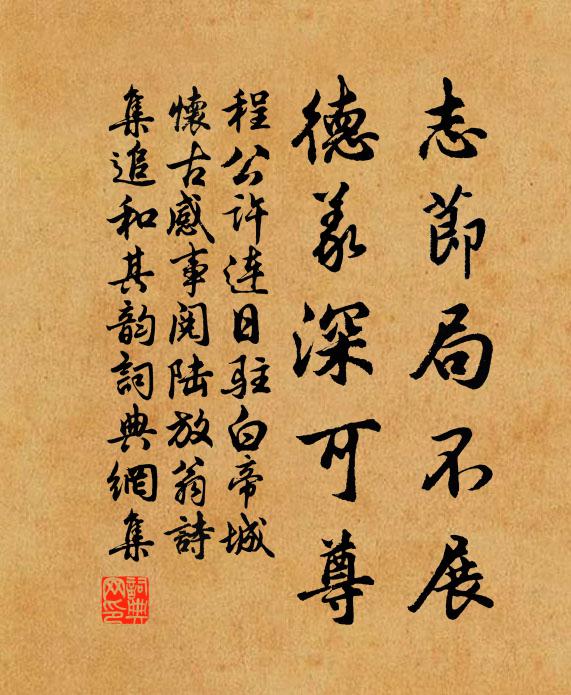 志節局不展
德義深可尊
程公許連日駐白帝城
懷古感事閱陸放翁詩
集追和其韵詞典網集
詞典网印